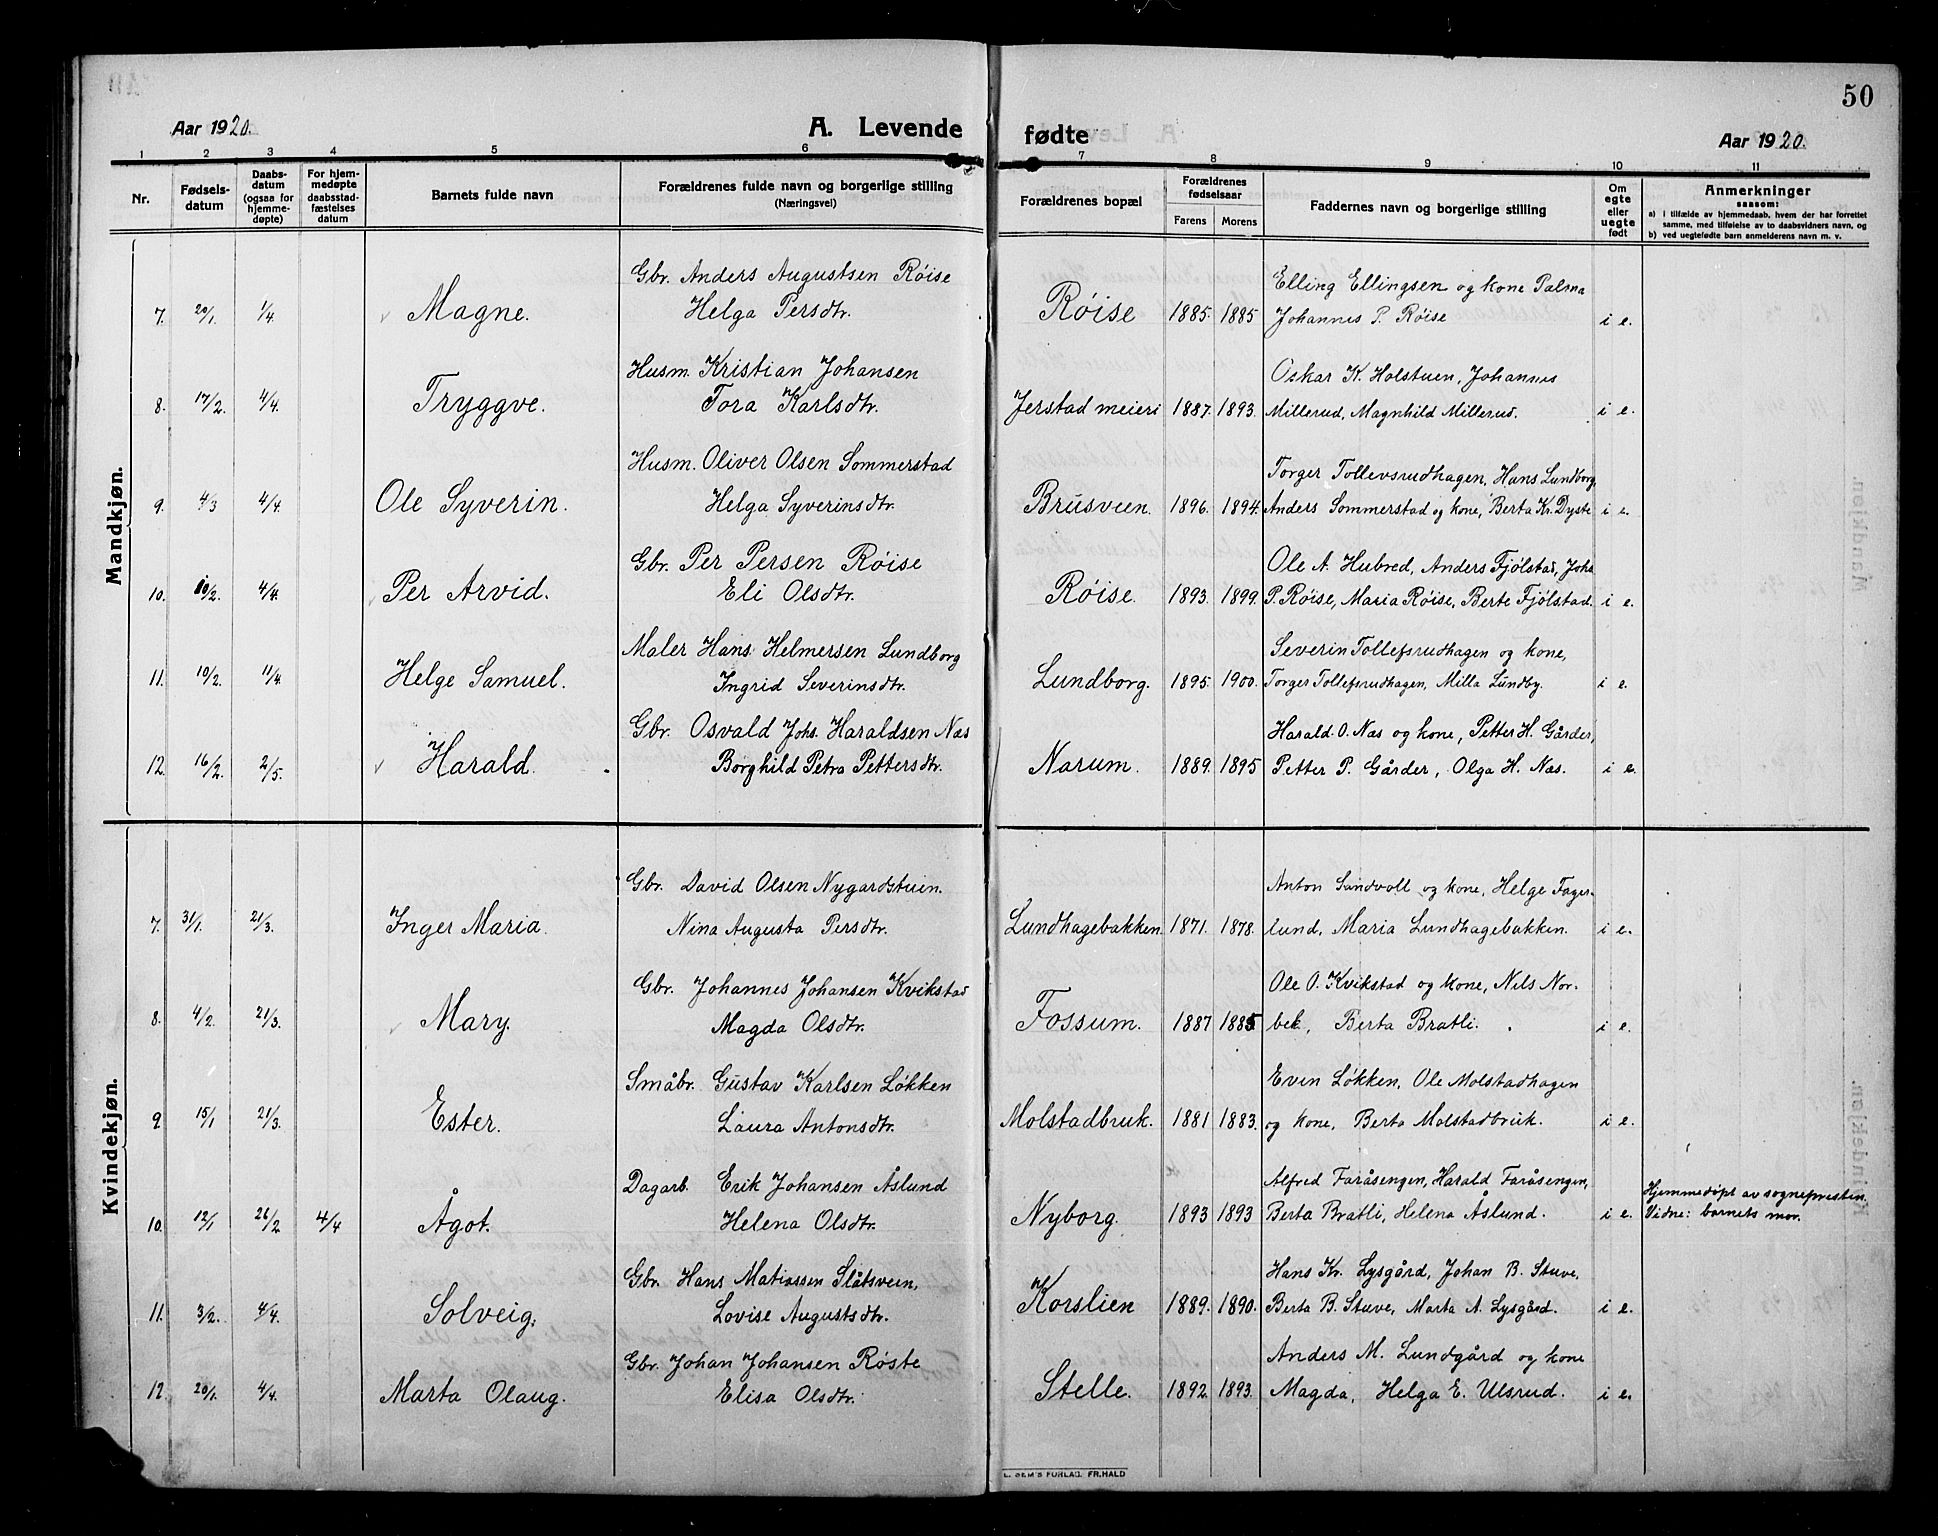 50
Aar 1920.
A. Levende fødte
Aar 1920.
1 2 3 4 5 6 7 8 9 10 11
Nr.
Fødsels-
datum
Daabs-
datum
(ogsaa for
hjemme-
døpte)
For hjem-
medøpte
daabsstad-
fæstelses
datum
Barnets fulde navn
Forældrenes fulde navn og borgerlige stilling
(Næringsvei)
Forældrenes bopæl
Forældrenes
fødselsaar
Farens Morens
Faddernes navn og borgerlige stilling
Om
egte
eller
uegte
født
Anmerkninger
saasom:
a) i tilfælde av hjemmedaab, hvem der har forrettet
samme, med tilføielse av to daabsvidners navn, og
b) ved uegtefødte barn anmelderens navn m. v.
Mandkjøn.
Gbr. Anders Augustsen Røise Elling Ellingsen og kone Palma
7. 20/1. 1/4. Magne. Helga Persdtr. Røise 1885. 1885 Johannes P. Røise i e.
Husm. Kristian Johansen Oskar K. Holstuen, Johannes
8. 17/2. 4/4. Tryggve. Tora Karlsdtr. Jerstad meieri 1887. 1893. Millerud, Magnhild Millerud. i e.
Husm. Oliver Olsen Sommerstad Torger Tollevsrudhagen, Hans Lundborg,
9. 4/3 4/4. Ole Syverin. Helga Syverinsdtr. Brusveen. 1896. 1894. Anders Sommerstad og kone, Berta Kr. Dyste i e.
Gbr. Per Persen Røise Ole A. Hubred, Anders Fjølstad, Joha
10. 10/2. 4/4. Per Arvid. Eli Olsdtr. Røise. 1893. 1899. P. Røise, Maria Røise, Berte Fjølstad. i e.
Maler Hans Helmersen Lundborg Severin Tollefsrudhagen og kone,
11. 10/2. 11/4. Helge Samuel. Ingrid Severinsdtr. Lundborg. 1895. 1900. Torger Tollefsrudhagen, Milla Lundby. i e.
Gbr. Osvald Johs. Haraldsen Næs Harald O. Næs og kone, Petter H. Gårder,
12. 16/2. 2/5. Harald. Borghild Petra Pettersdtr. Narum. 1889. 1895 Petter P. Gårder, Olga H. Næs. i e.
Kvindekjøn.
Gbr. David Olsen Nygardstuen. Anton Sandvoll og kone, Helge Fager-
7. 31/1. 21/3. Inger Maria. Nina Augusta Persdtr. Lundhagebakken. 1871. 1878. lund, Maria Lundhagebakken. i e.
Gbr. Johannes Johansen Kvikstad Ole O. Kvikstad og kone, Nils Nor-
8. 4/2. 21/3. Mary. Magda Olsdtr. Fossum. 1887 1885 bek, Berta Bratli. i e.
Småbr. Gustav Karlsen Løkken Even Løkken, Ole Molstadhagen
9 15/1 21/3. Ester. Laura Antonsdtr. Molstadbruk. 1881 1883. og kone, Berta Molstadbruk. i e.
Dagarb. Erik Johansen Åslund Alfred Faråsengen, Harald Faråsengen, Hjemmedøpt av sognepresten.
10. 12/1 26/2 4/4 Ågot. Helena Olsdtr. Nyborg. 1893 1893 Berta Bratli, Helena Åslund. i e. Vidne: barnets mor.
Gbr. Hans Matiassen Slåtsveen, Hans Kr. Lysgård, Johan B. Stuve,
11. 3/2. 4/4. Solveig. Lovise Augustsdtr. Korslien 1889. 1890. Berta B. Stuve, Marta A. Lysgård. i e.
Gbr. Johan Johansen Røste Anders M. Lundgård og kone
12. 20/1. 4/4. Marta Olaug. Elisa Olsdtr. Stelle. 1892. 1893. Magda, Helga E. Ulsrud. i e.
E. SEM'S FORLAG. FR.HALD